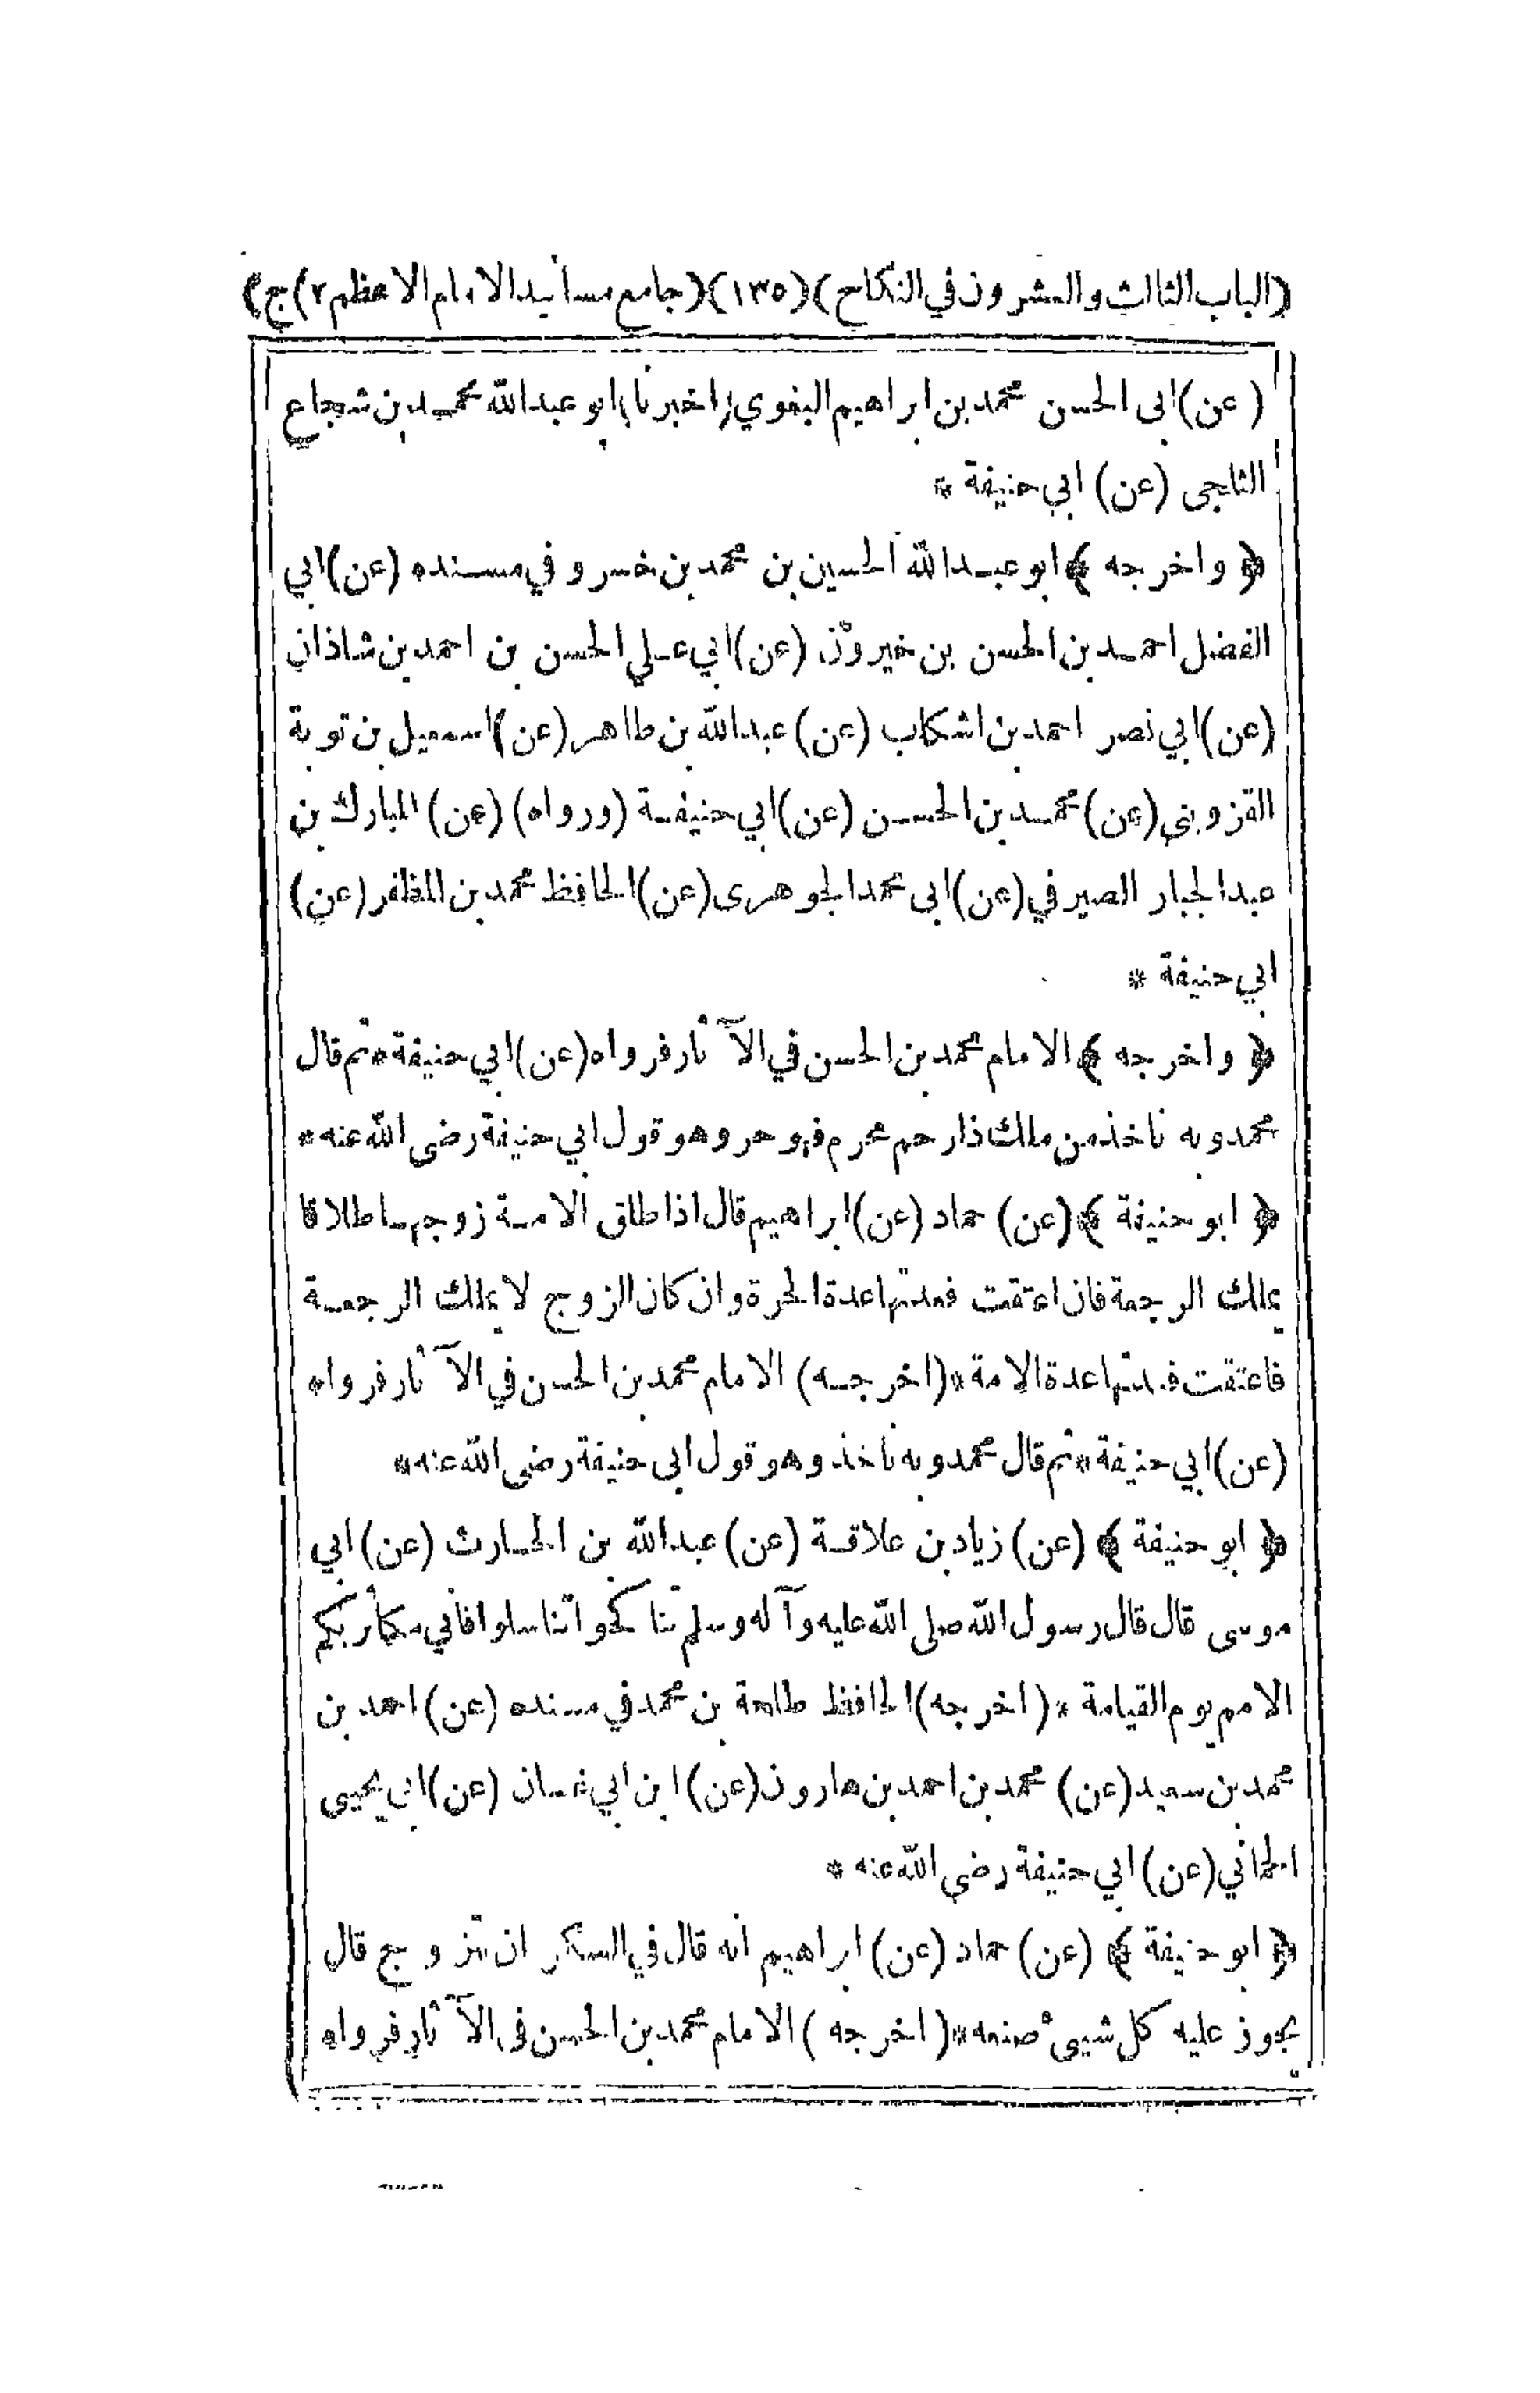 (الباب الثالث والعشرون في النكاح) (١٣٥) (جامع مسانيد الامام الاعظم ٢) ج)
(عن) ابى الحسن محمد بن ابراهيم البغوي (اخبرنا) ابو عبد الله محمد بن شجاع
الثلجى (عن) ابي حنيفة *
﴿ واخرجه ﴾ ابو عبد الله الحسين بن محمد بن خسرو في مسنده (عن) ابي
الفضل احمد بن الحسن بن خيرون (عن) ابي علي الحسن بن احمد بن شاذان
(عن) ابي نصر احمد بن اشكاب (عن) عبد الله بن طاهر (عن) اسمعيل بن توبة
القزويني (عن) محمد بن الحسن (عن) ابي حنيفة (ورواه) (عن) المبارك بن
عبد الجبار الصيرفي (عن) ابى محمد الجوهرى (عن) الحافظ محمد بن المظفر (عن)
ابي حنيفة *
﴿ واخرجه ﴾ الامام محمد بن الحسن في الآثار فرواه (عن) ابي حنيفة * ثم قال
محمد وبه ناخذ من ملك ذا رحم محرم فهو حر وهو قول ابي حنيفة رضى الله عنه *
﴿ ابو حنيفة ﴾ (عن) حماد (عن) ابراهيم قال اذا طلق الامة زوجها طلاقا
يملك الرجعة فان اعتقت فعدتها عدة الحرة وان كان الزوج لا يملك الرجعة
فاعتقت فعدتها عدة الامة * (اخرجه) الامام محمد بن الحسن في الآثار فرواه
(عن) ابي حنيفة * ثم قال محمد وبه ناخذ وهو قول ابى حنيفة رضى الله عنه *
﴿ ابو حنيفة ﴾ (عن) زياد بن علاقة (عن) عبد الله بن الحارث (عن) ابي
موسى قال قال رسول الله صلى الله عليه وآله وسلم تناكحوا تناسلوا فاني مكاثر بكم
الامم يوم القيامة * (اخرجه) الحافظ طلحة بن محمد في مسنده (عن) احمد بن
محمد بن سعيد (عن) محمد بن احمد بن هارون (عن) ابن ابي غسان (عن) ابي يحيى
الحماني (عن) ابي حنيفة رضى الله عنه *
﴿ ابو حنيفة ﴾ (عن) حماد (عن) ابراهيم انه قال في السكر ان يتزوج قال
يجوز عليه كل شيئ صنعه * (اخرجه) الامام محمد بن الحسن فى الآثار فرواه